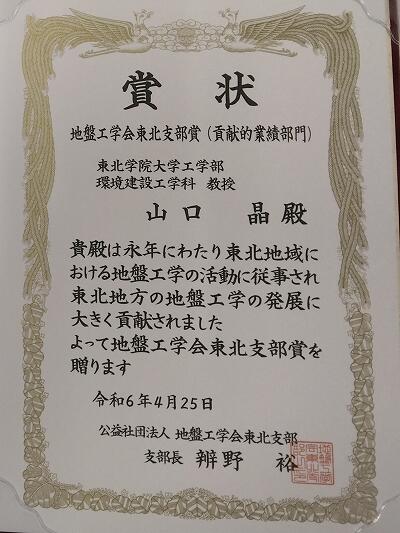 賞状
地盤工学会東北支部賞（貢献的業績部門）
東北学院大学工学部
環境建設工学科 教授
山口 晶 殿
貴殿は永年にわたり東北地域に
おける地盤工学の活動に従事され
東北地方の地盤工学の発展に
大きく貢献されました
よって地盤工学会東北支部賞を
贈ります
令和6年4月25日
公益社団法人 地盤工学会東北支部
支部長 辧野 裕